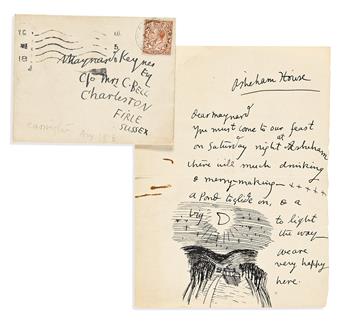 Maynard Keynes
Esq
C/o Mrs C. Bell
Charleston
FIRLE
SUSSEX
Asheham House
Dear Maynard
You must come to our feast
on Saturday night at Asheham
there will much drinking
& merry-making
a Pond to glide in, & a
to light
the way
we are
very happy
here.